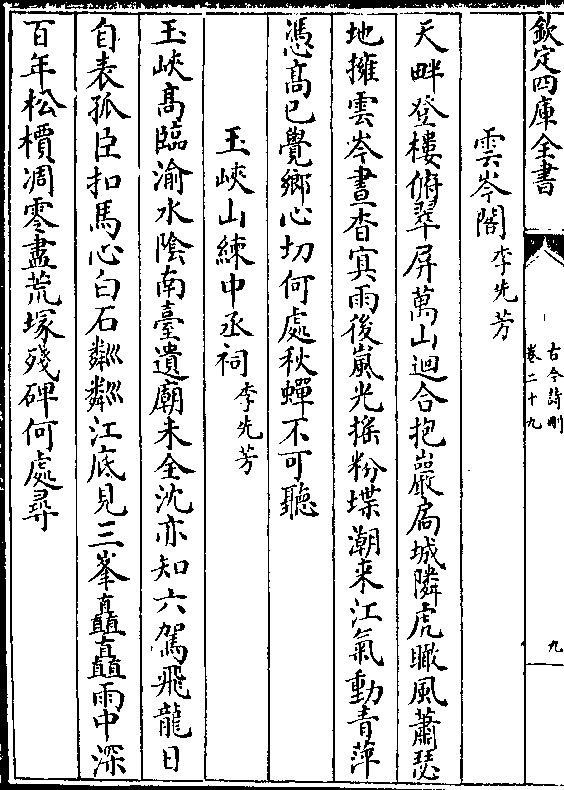 欽定四庫全書
古今詩刪
卷二十九
九
雲岑閣 李先芳
天畔登樓俯翠屏萬山迴合抱巖扄城隣虎瞰風蕭瑟
地擁雲岑晝杳冥雨後嵐光搖粉堞潮來江氣動青萍
憑髙已覺鄉心切何處秋蟬不可聽
玉峽山練中丞祠 李先芳
玉峽髙臨渝水陰南臺遺廟未全沈亦知六駕飛龍日
自表孤臣扣馬心白石粼粼江底見三峯矗矗雨中深
百年松檟凋零盡荒塚殘碑何處尋